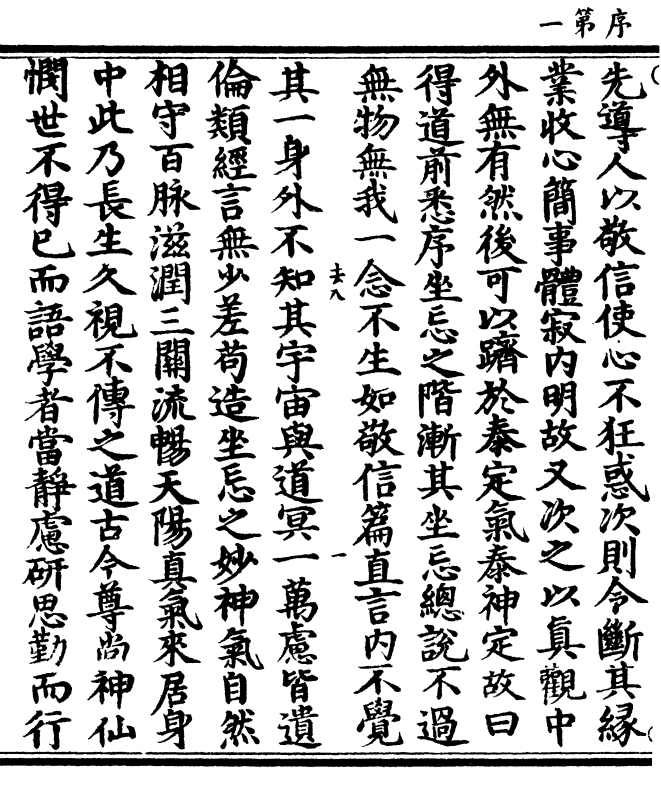 序第一
先導人以敬信使心不狂惑次則令斷其緣
業收心簡事體寂內明故又次之以真觀中
外無有然後可以躋於泰定氣泰神定故曰
得道前悉序坐忘之階漸其坐忘總說不過
無物無我一念不生如敬信篇直言內不覺
去八
一
其一身外不知其宇宙與道冥一萬慮皆遺
倫類經言無少差苟造坐忘之妙神氣自然
相守百脉滋潤三關流暢天陽真氣來居身
中此乃長生久視不傳之道古今尊尚神仙
憫世不得已而語學者當靜慮研思勤而行